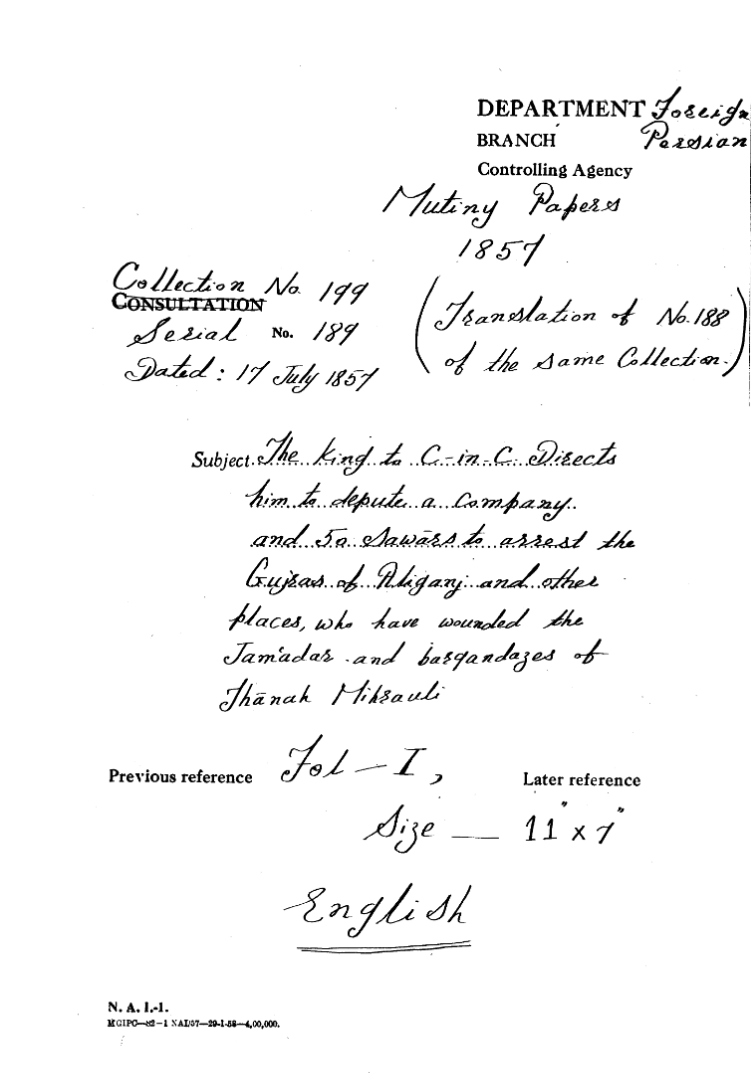 DEPARTMENT Foreign
BRANCH Persian
Controlling Agency
Mutiny Papers
1857
Collection No. 199
CONSULTATION
Serial No. 189
Dated: 17 July 1857
(Translation of No. 188
of the same Collection.)
Subject. The King to C-in-C. Directs
him to depute a Company
and 50 Sawārs to arrest the
Gujras of Aliganj and other
places, who have wounded the
Jam'adar and barqandazes of
Thānah Mihrauli
Previous reference Fol — I,
Later reference
Size — 11" x 7"
English
N. A. I.-1.
MGIPC—82—1 NAI/57—29-1-58—4,00,000.